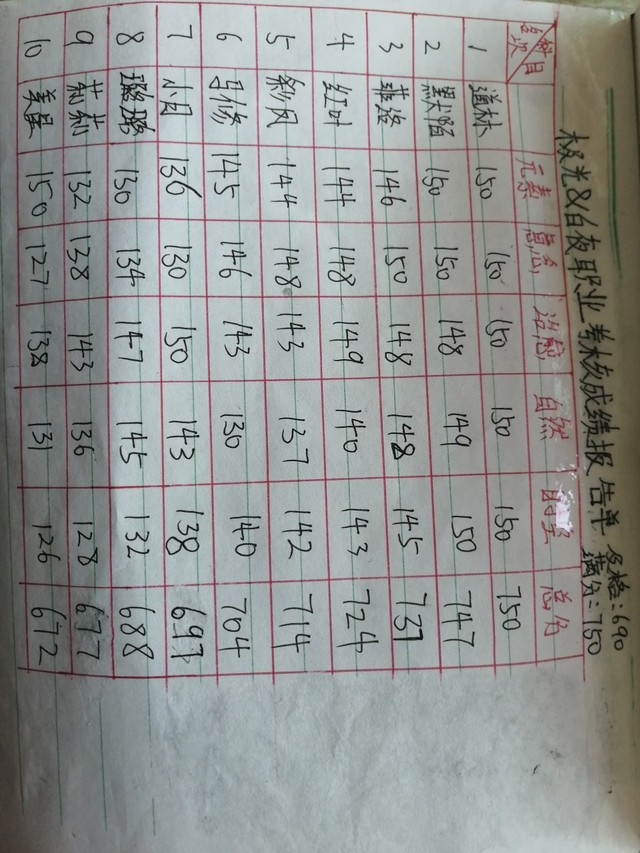 极光&白夜职业考核成绩报告单 及格:690
满分:750
科目 名次 元素 治愈 自然 时空 总分
1 道林 150 150 150 150 150 750
2 默陌 150 150 148 149 150 747
3 菲洛 146 150 148 148 145 737
4 红叶 144 148 149 140 143 724
5 144 148 143 137 142 714
6 145 146 143 130 140 704
7 136 130 150 143 138 697
8 璐璐 130 134 147 145 132 688
9 莉莉 132 138 143 136 128 677
10 150 127 138 131 126 672